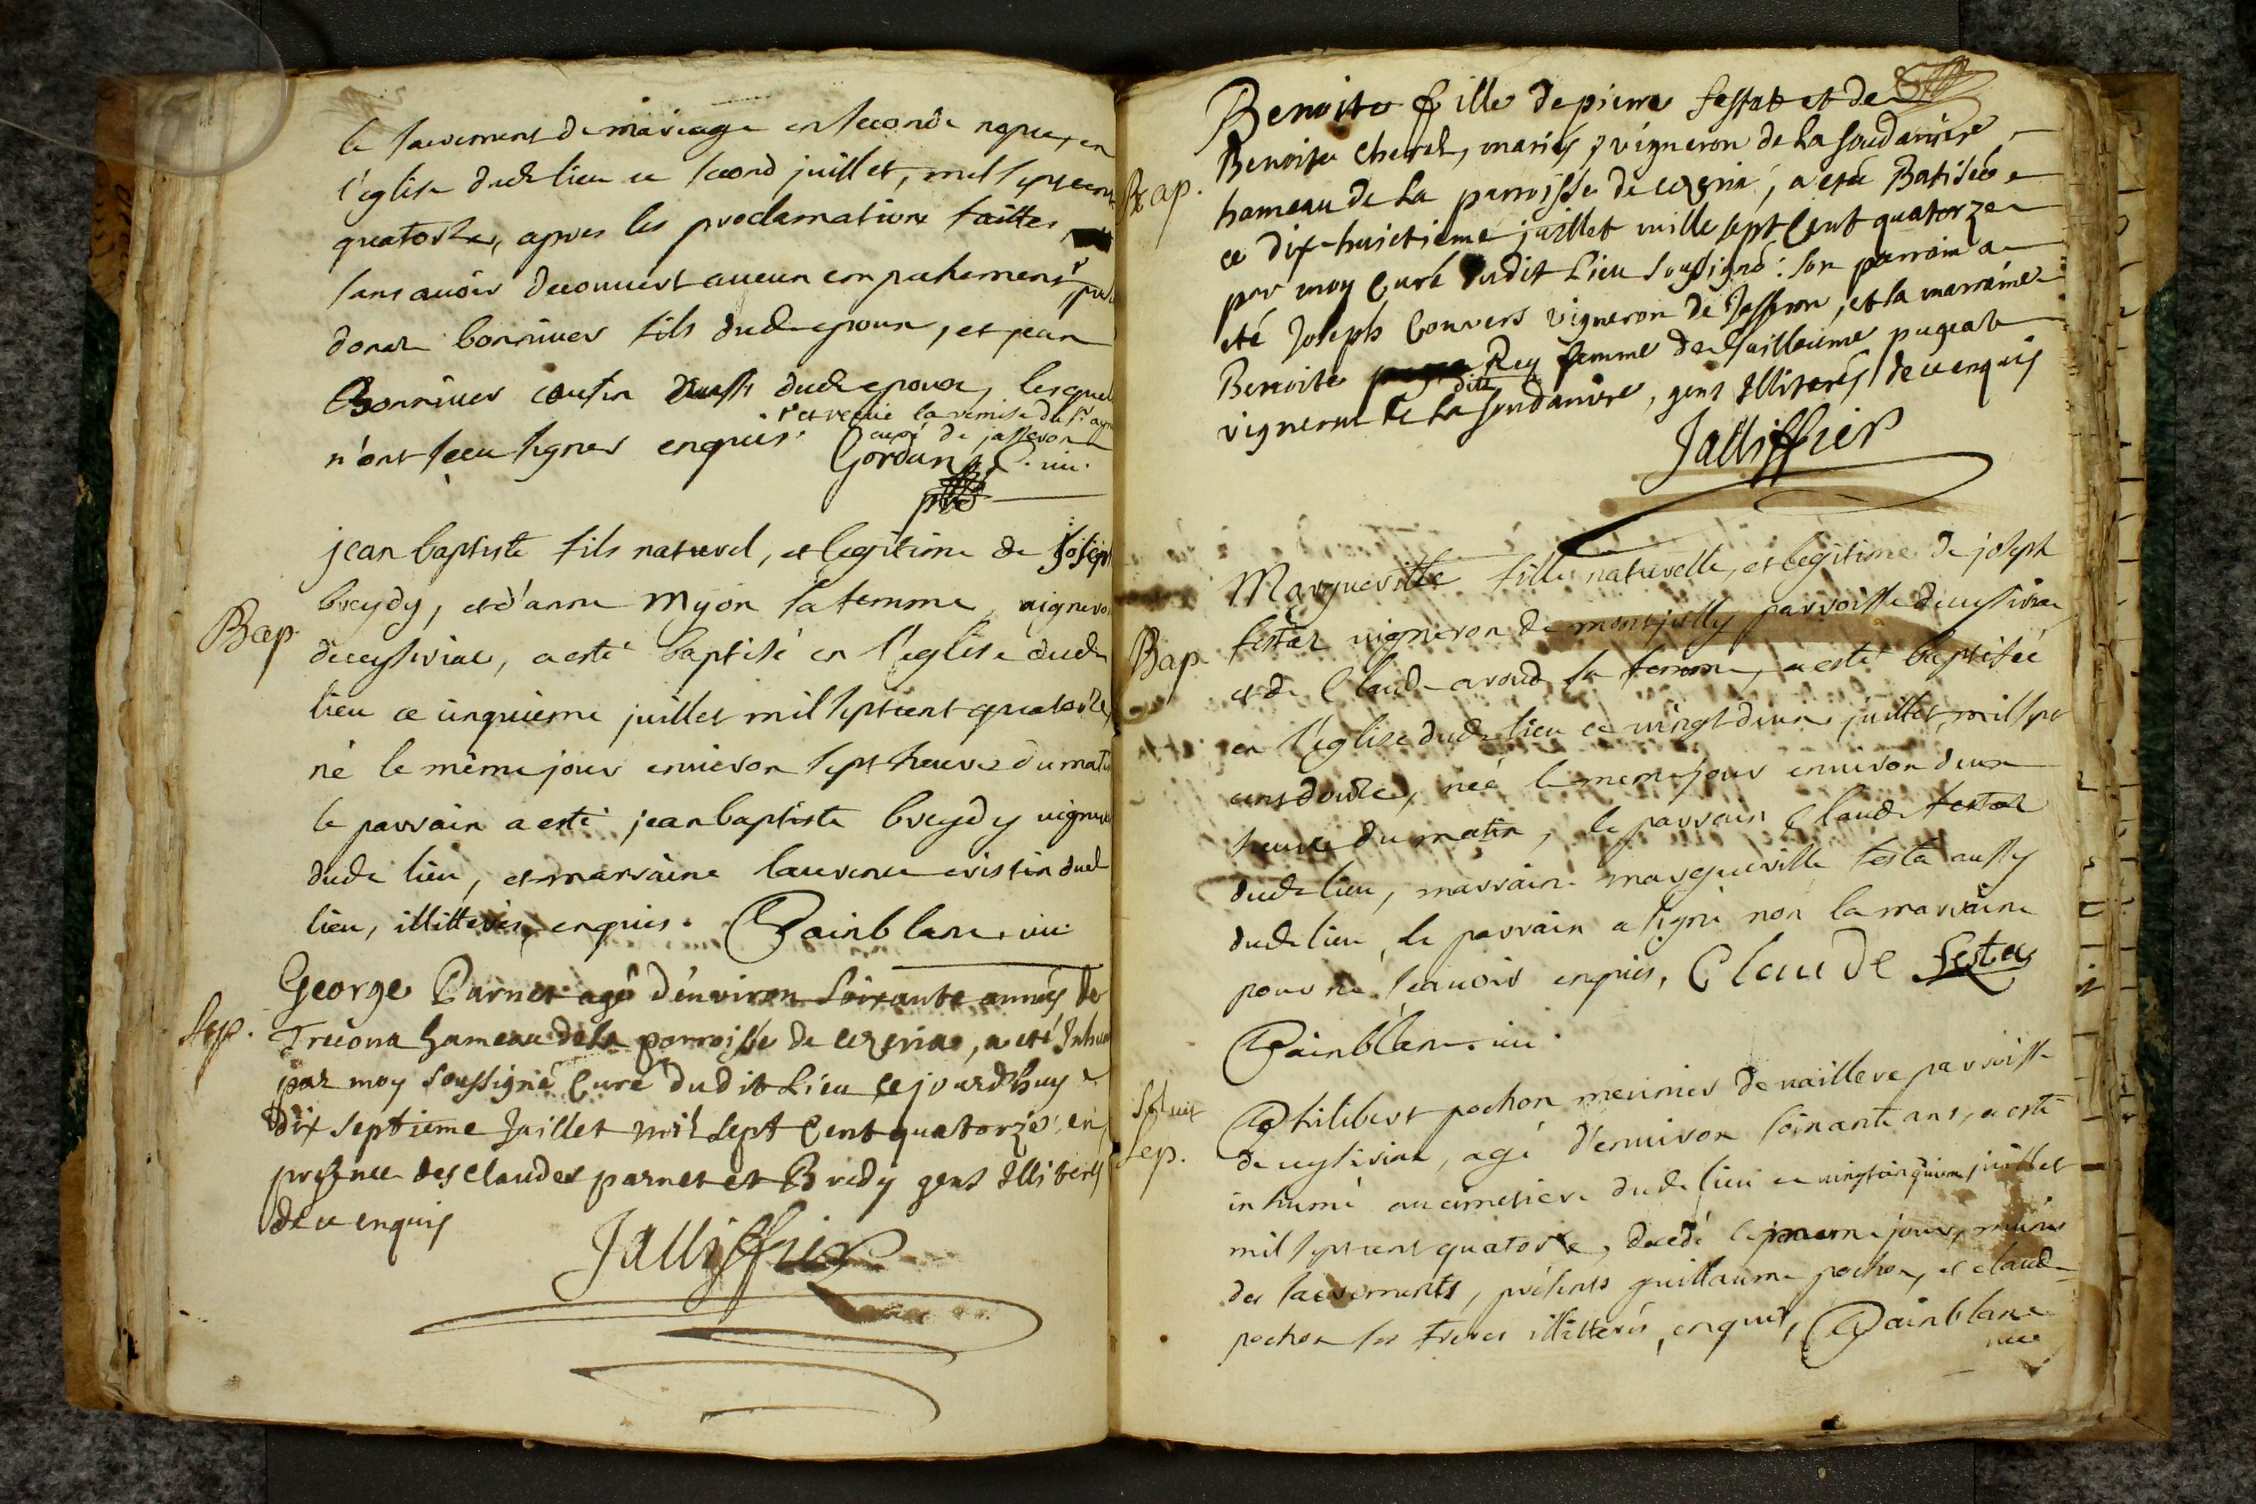 le sacrement de mariage en seconde nopce, en
l'eglise dud. lieu ce second juillet, mil sept cent
quatorze, apres les proclamations faittes
sans avoir decouvert aucun empechement
donat bonniver fils dud. epoux, et jean
Bonniver cousin dud. epoux, lesquels
n'ont sceu signer enquis.
et veue la remise du sr
curé de jasseron
Gordan
jean baptiste fils naturel, et legitime de joseph
breydy, et d'anne Myon sa femme, vigneron
Bap
de ceyseriac, a esté baptisé en l'eglise dud.
lieu ce cinquieme juillet mil sept cent quatorze,
né le même jour environ sept heures du matin
le parrain a esté jean baptiste breydy vigneron
dud. lieu, et marraine laurence cristin dud.
lieu, illitterés, enquis. Painblanc. vic.
George Parnet agé d'environ soixante années de
Sep.
Trecona hameau de la parroisse de cezeria, a eté Inhumé
par moy soussigné Curé dudit Lieu ce jourd'huy
dix septieme Juillet mil sept Cent quatorze, en
presence des Claudes parnet et Bredy gens Illiterés
de ce enquis
Jalliffier
Benoite fille de pierre festat et de
Benoite Chevrel, mariés, vigneron de La soudaniere
Bap.
hameau de La parroisse de cezeria, a eté Batisée
ce dix-huictieme juillet mille sept Cent quatorze
par moy Curé dudit Lieu soussigné: son parrain a
eté Joseph Convers vigneron de Jasseron, et la marraine
Benoite Rey femme de Guilleaume pugeat
dite
vigneron de La soudaniere, gens Illiterés de ce enquis
Jalliffier
Margueritte fille naturelle, et legitime de joseph
festaz vigneron de montjully parroisse de ceyseriac
Bap.
et de Claude avoud sa femme, a esté baptisée
en l'eglise dud. lieu ce vingt deux juillet, mil sept
cens quatorze, née le meme jour environ deux
heures du matin, le parrain Claude festaz
dud. lieu, marraine margueritte festa aussy
dud. lieu, le parrain a signé non la marraine
pour ne sçavoir enquis, Claude festas
Painblanc. vic.
Philibert pochon meunier de vaillere parroisse
Sep.
de ceyseriac, agé d'environ soixante ans, a esté
inhumé au cimetiere dud. lieu ce vingt cinquieme juillet
mil sept cent quatorze, decedé le meme jour, munis
des sacrements, présents guillaume pochon, et claude
pochon ses freres illitterés, enquis, Painblanc
vic.